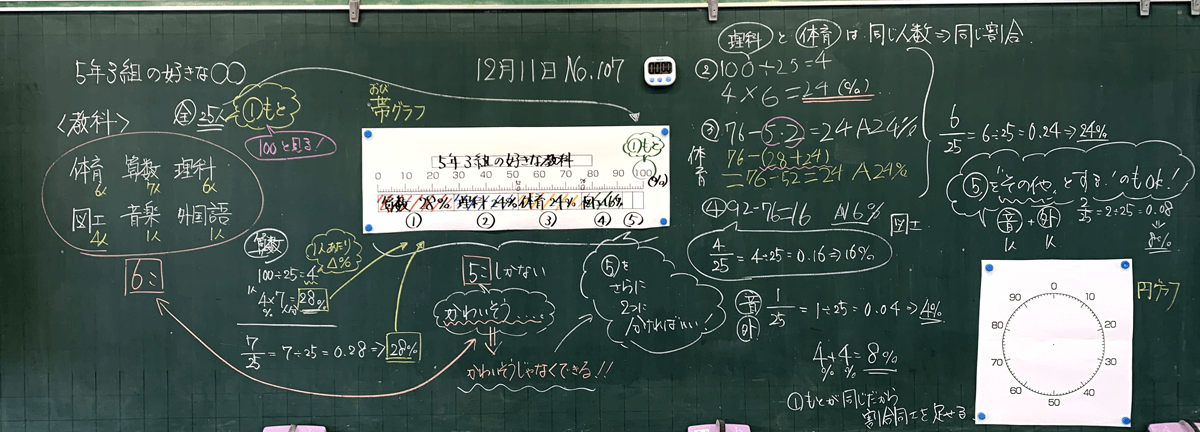 5年3組の好きな○○
12月11日 No.107
<教科>
全 25人
①もと
100と見る!
体育 算数 理科
6人 7人 6人
図工 音楽 外国語
4人 1人 1人
6こ
算数
100÷25=4
1人あたり
△%
4×7=28%
7/25=7÷25=0.28⇒28%
おび
帯グラフ
①もと
5年3組の好きな教科
0 10 20 30 40 50 60 70 80 90 100
(%)
算数 28% 理科 24% 体育 24% 図工 16%
① ② ③ ④ ⑤
5こしかない
かわいそう.....
かわいそうじゃなくできる!!
⑤を
さらに
2つに
分ければいい!
理科 と 体育 は 同じ人数⇒同じ割合
②100÷25=4
4×6=24(%)
体育
③76-52=24 A24%
76-(28+24)
=76-52=24 A24%
④92-76=16 A16%
図工
4/25=4÷25=0.16⇒16%
音
外
1/25=1÷25=0.04⇒4%
4+4=8%
% %
①もとが同じだから
割合同士を足せる
6/25=6÷25=0.24⇒24%
⑤を"その他"とする!のもOK!
音+外
1人 1人
2/25=2÷25=0.08
⇓
8%
円グラフ
0
10
20
30
40
50
60
70
80
90